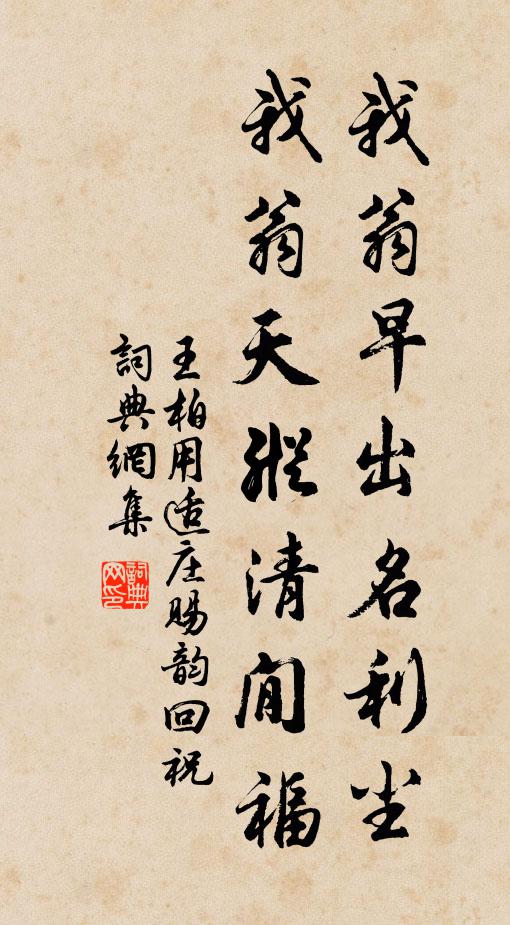 我翁早出名利尘
我翁天縱清閒福
王柏用适庄賜韵回祝
詞典網集
詞典网印